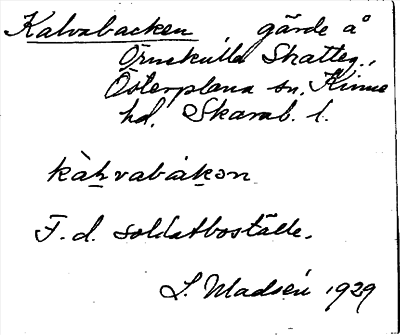 Kalvabacken, gärde å
Örnekulla Skatteg.,
Österplana sn, Kinne
hd, Skarab. l.
kàḵvabàḵən
F. d. soldatboställe.
L. Madsén 1929